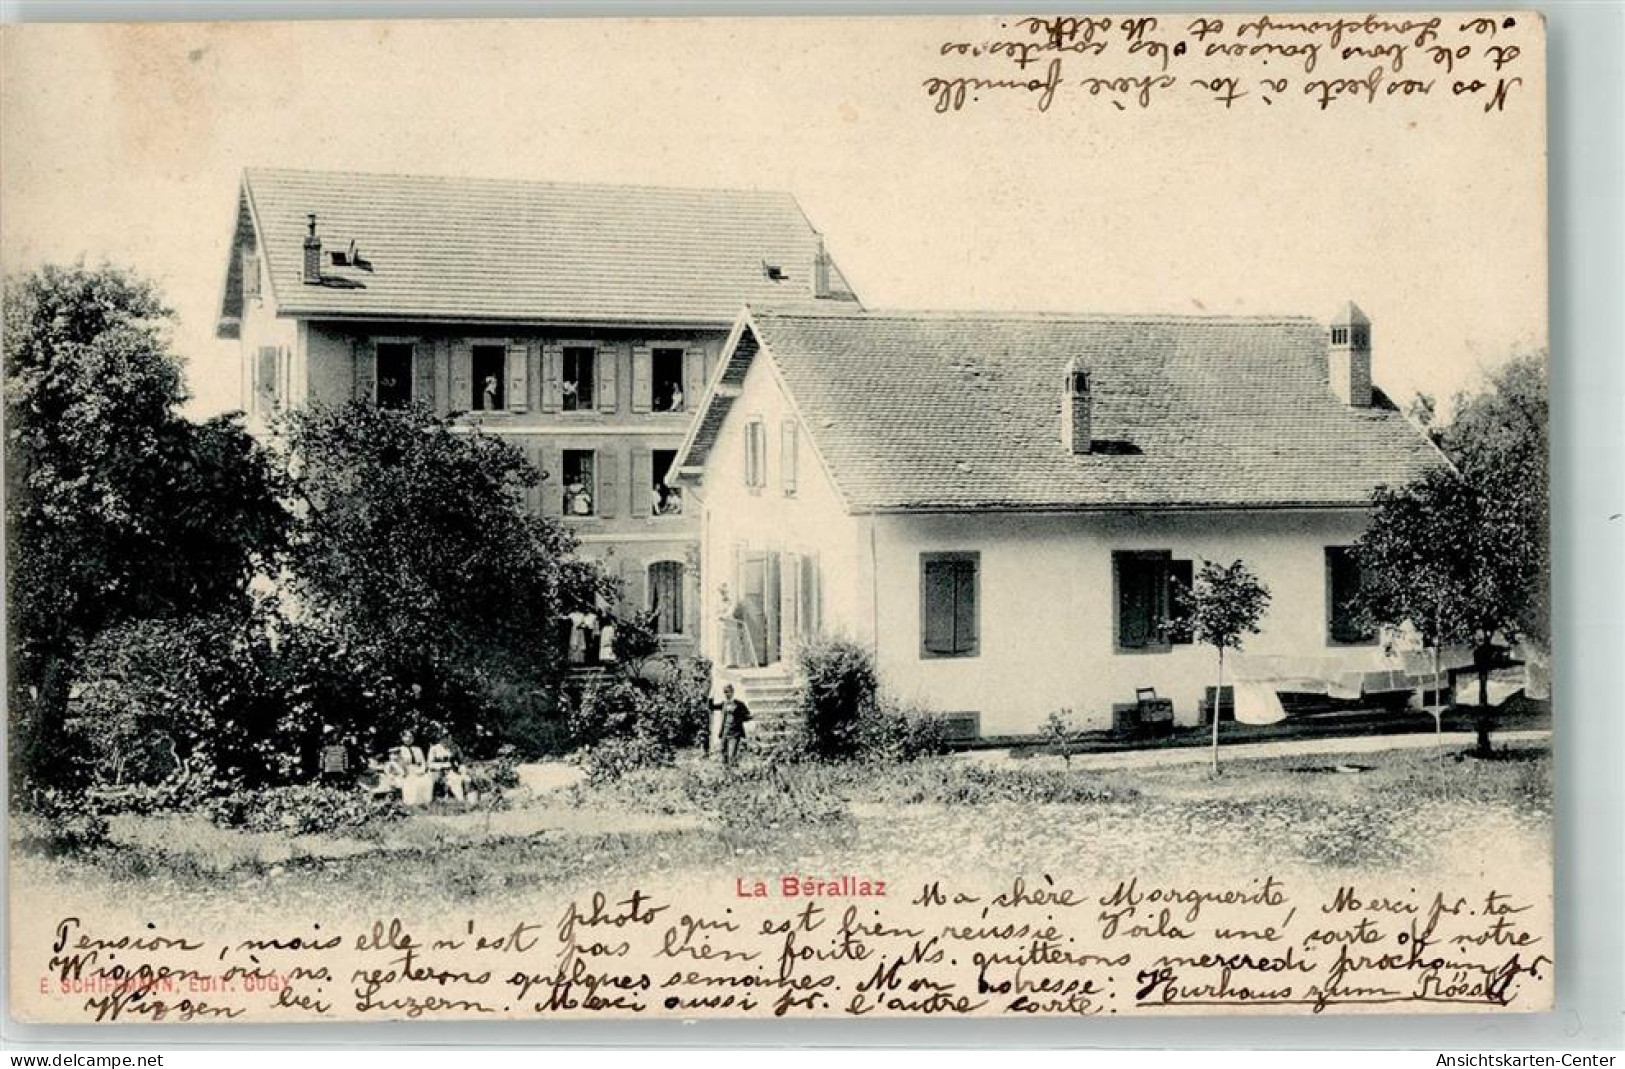 Nos respects à ta chère famille
et de bons baisers des comtesses
de Longchamps et Malthe.
La Bérallaz
Ma chère Marguerite, Merci pr. ta
photo qui est bien réussie. Voila une carte de notre
Pension, mais elle n'est pas bien faite. Ns. quitterons mercredi prochain pr.
Wiggen où ns. resterons quelques semaines. Mon adresse: Kurhaus zum Rössli
E. SCHIFFMANN, EDIT. CUGY
Wiggen bei Luzern. Merci aussi pr. l'autre carte.
Ansichtskarten-Center